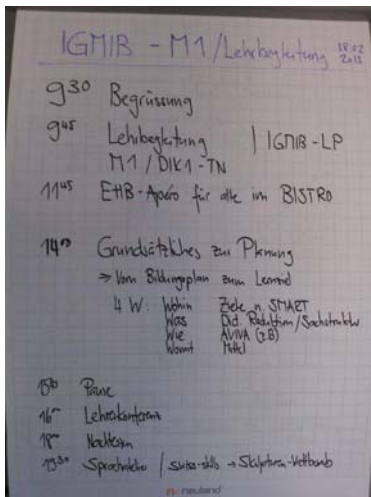 IGMIB - M1 / Lehrbegleitung 18.02
9³⁰ Begrüssung
9⁴⁵ Lehrbegleitung | IGMIB - LP
M1 / DIK1 - TN
11⁴⁵ EHB - Apéro für alle im BISTRO
14⁰⁰ Grundsätzliches zur Planung
→ Vom Bildungsplan zum Lernziel
4 W: Wohin Ziele n. SMART
Was Did. Reduktion / Sachstruktur
Wie AVIVA (z.B)
Womit Mittel
Pause
16⁰⁰ Lehrerkonferenz
18⁰⁰ Nachtessen
19³⁰ / Swiss-skills → Skulpturen-Wettbewerb
neuland